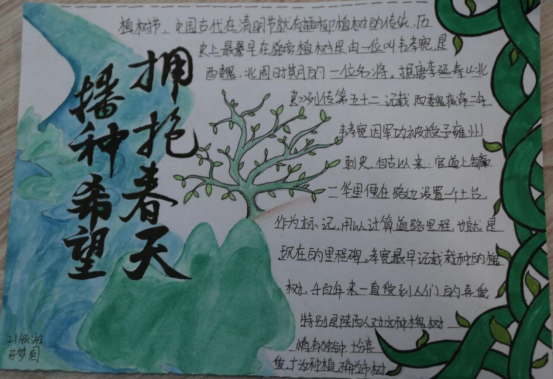 拥抱春天
播种希望
植树节,中国古代在清明节就有插柳植树的传统,历
史上最早在路旁植树是由一位叫韦孝宽,是
西魏、北周时期的一位名将。据唐李延寿《北
史》列传第五十二记载,西魏废帝二年,
韦孝宽因军功被授予雍州
刺史。自古以来,官道上每隔
一华里便在路边设置一个土台,
作为标记,用以计算道路里程,也就是
现在的里程碑。孝宽最早记载栽种的槐
树,千百年来一直受到人们的喜爱,
特别是陕西人对这种槐树
情有独钟,
21级
梦圆